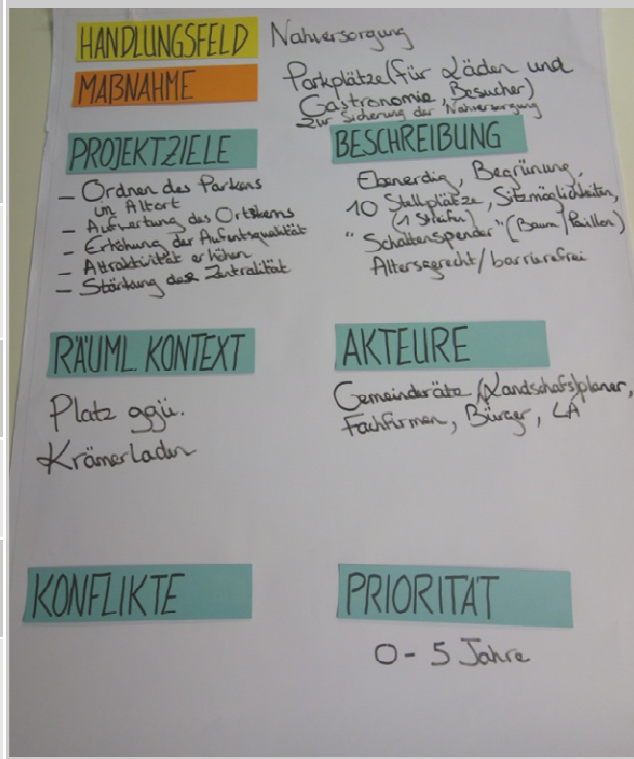 HANDLUNGSFELD Nahversorgung
MAßNAHME Parkplätze (für Läden und
Gastronomie, Besucher)
zur Sicherung der Nahversorgung
PROJEKTZIELE
- Ordnen des Parkens
im Altort
- Aufwertung des Ortskerns
- Erhöhung der Aufentsqualität
- Attraktivität erhöhen
- Stärkung der Zentralität
BESCHREIBUNG
Ebenerdig, Begrünung,
10 Stellplätze, Sitzmöglichkeiten,
(1 Streifen)
"Schattenspender" (Baum/Pavillon)
Altersgerecht/barrierefrei
RÄUML. KONTEXT
Platz ggü.
Krämerladen
AKTEURE
Gemeinderäte, (Landschafts)planer,
Fachfirmen, Bürger, LA
KONFLIKTE
PRIORITÄT
0 - 5 Jahre